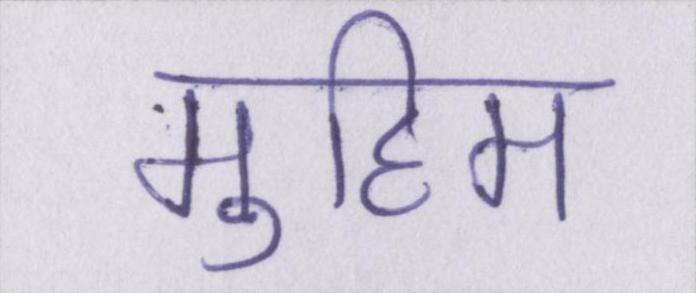 मुहिम